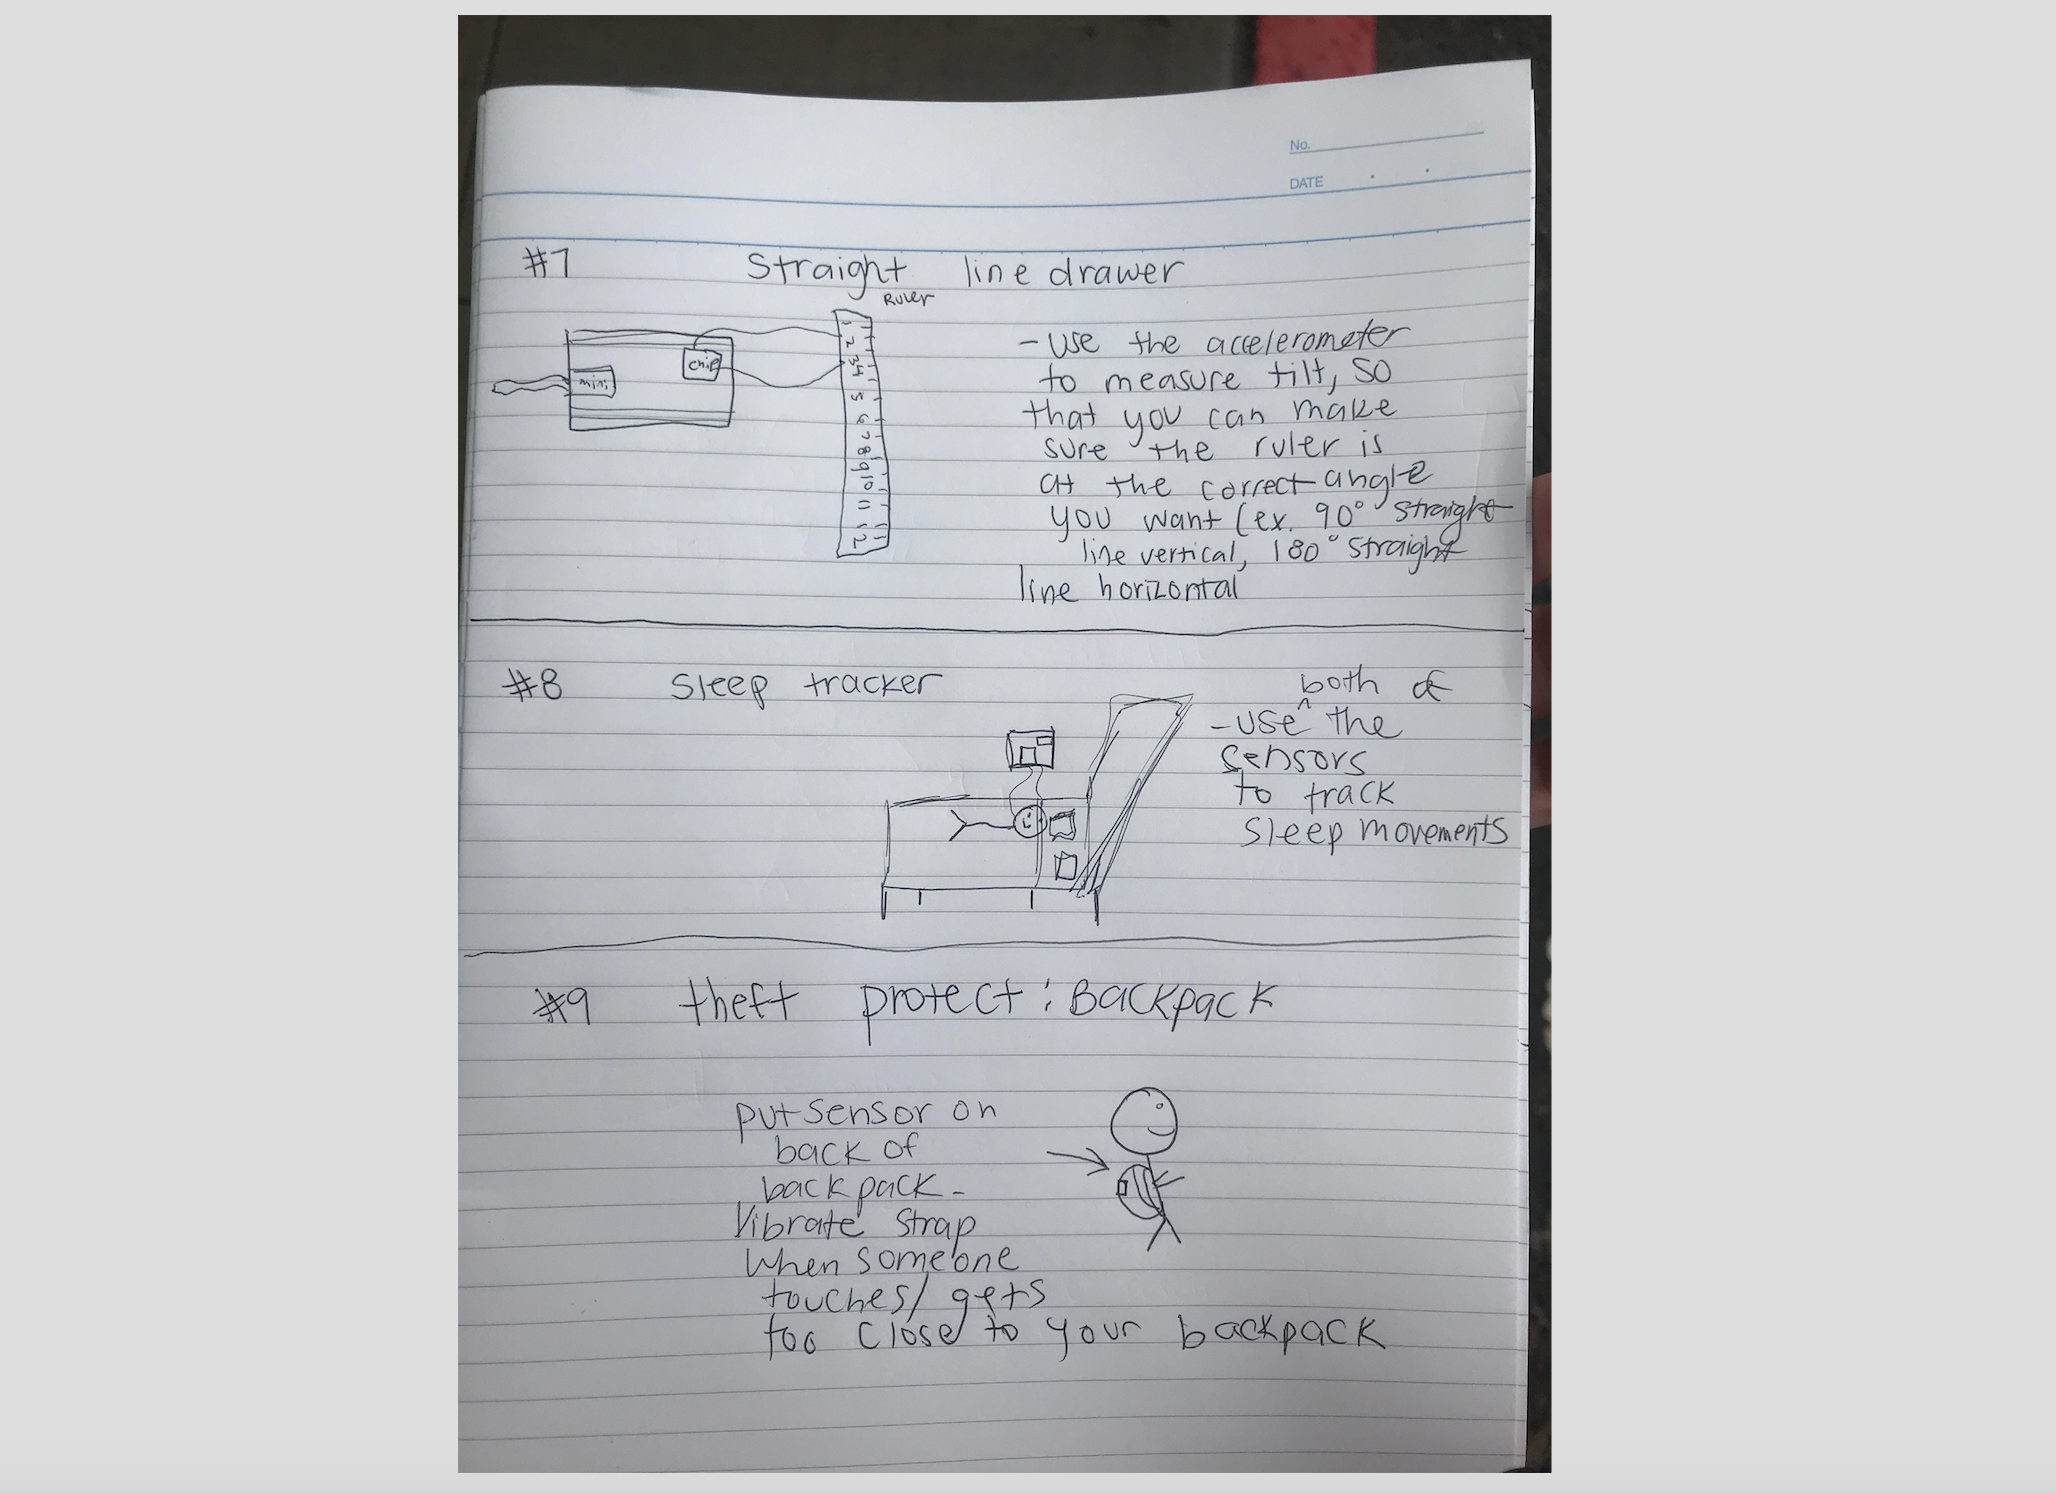 No.
DATE
#7 Straight line drawer
Ruler
mini
chip
1
2
3
4
5
6
7
8
9
10
11
12
- use the accelerometer
to measure tilt, so
that you can make
sure the ruler is
at the correct angle
you want (ex. 90° straight
line vertical, 180° straight
line horizontal
#8 Sleep tracker
both of
- use ^ the
sensors
to track
sleep movements
#9 theft protect: Backpack
put sensor on
back of
backpack -
Vibrate strap
when someone
touches/ gets
too close to your backpack